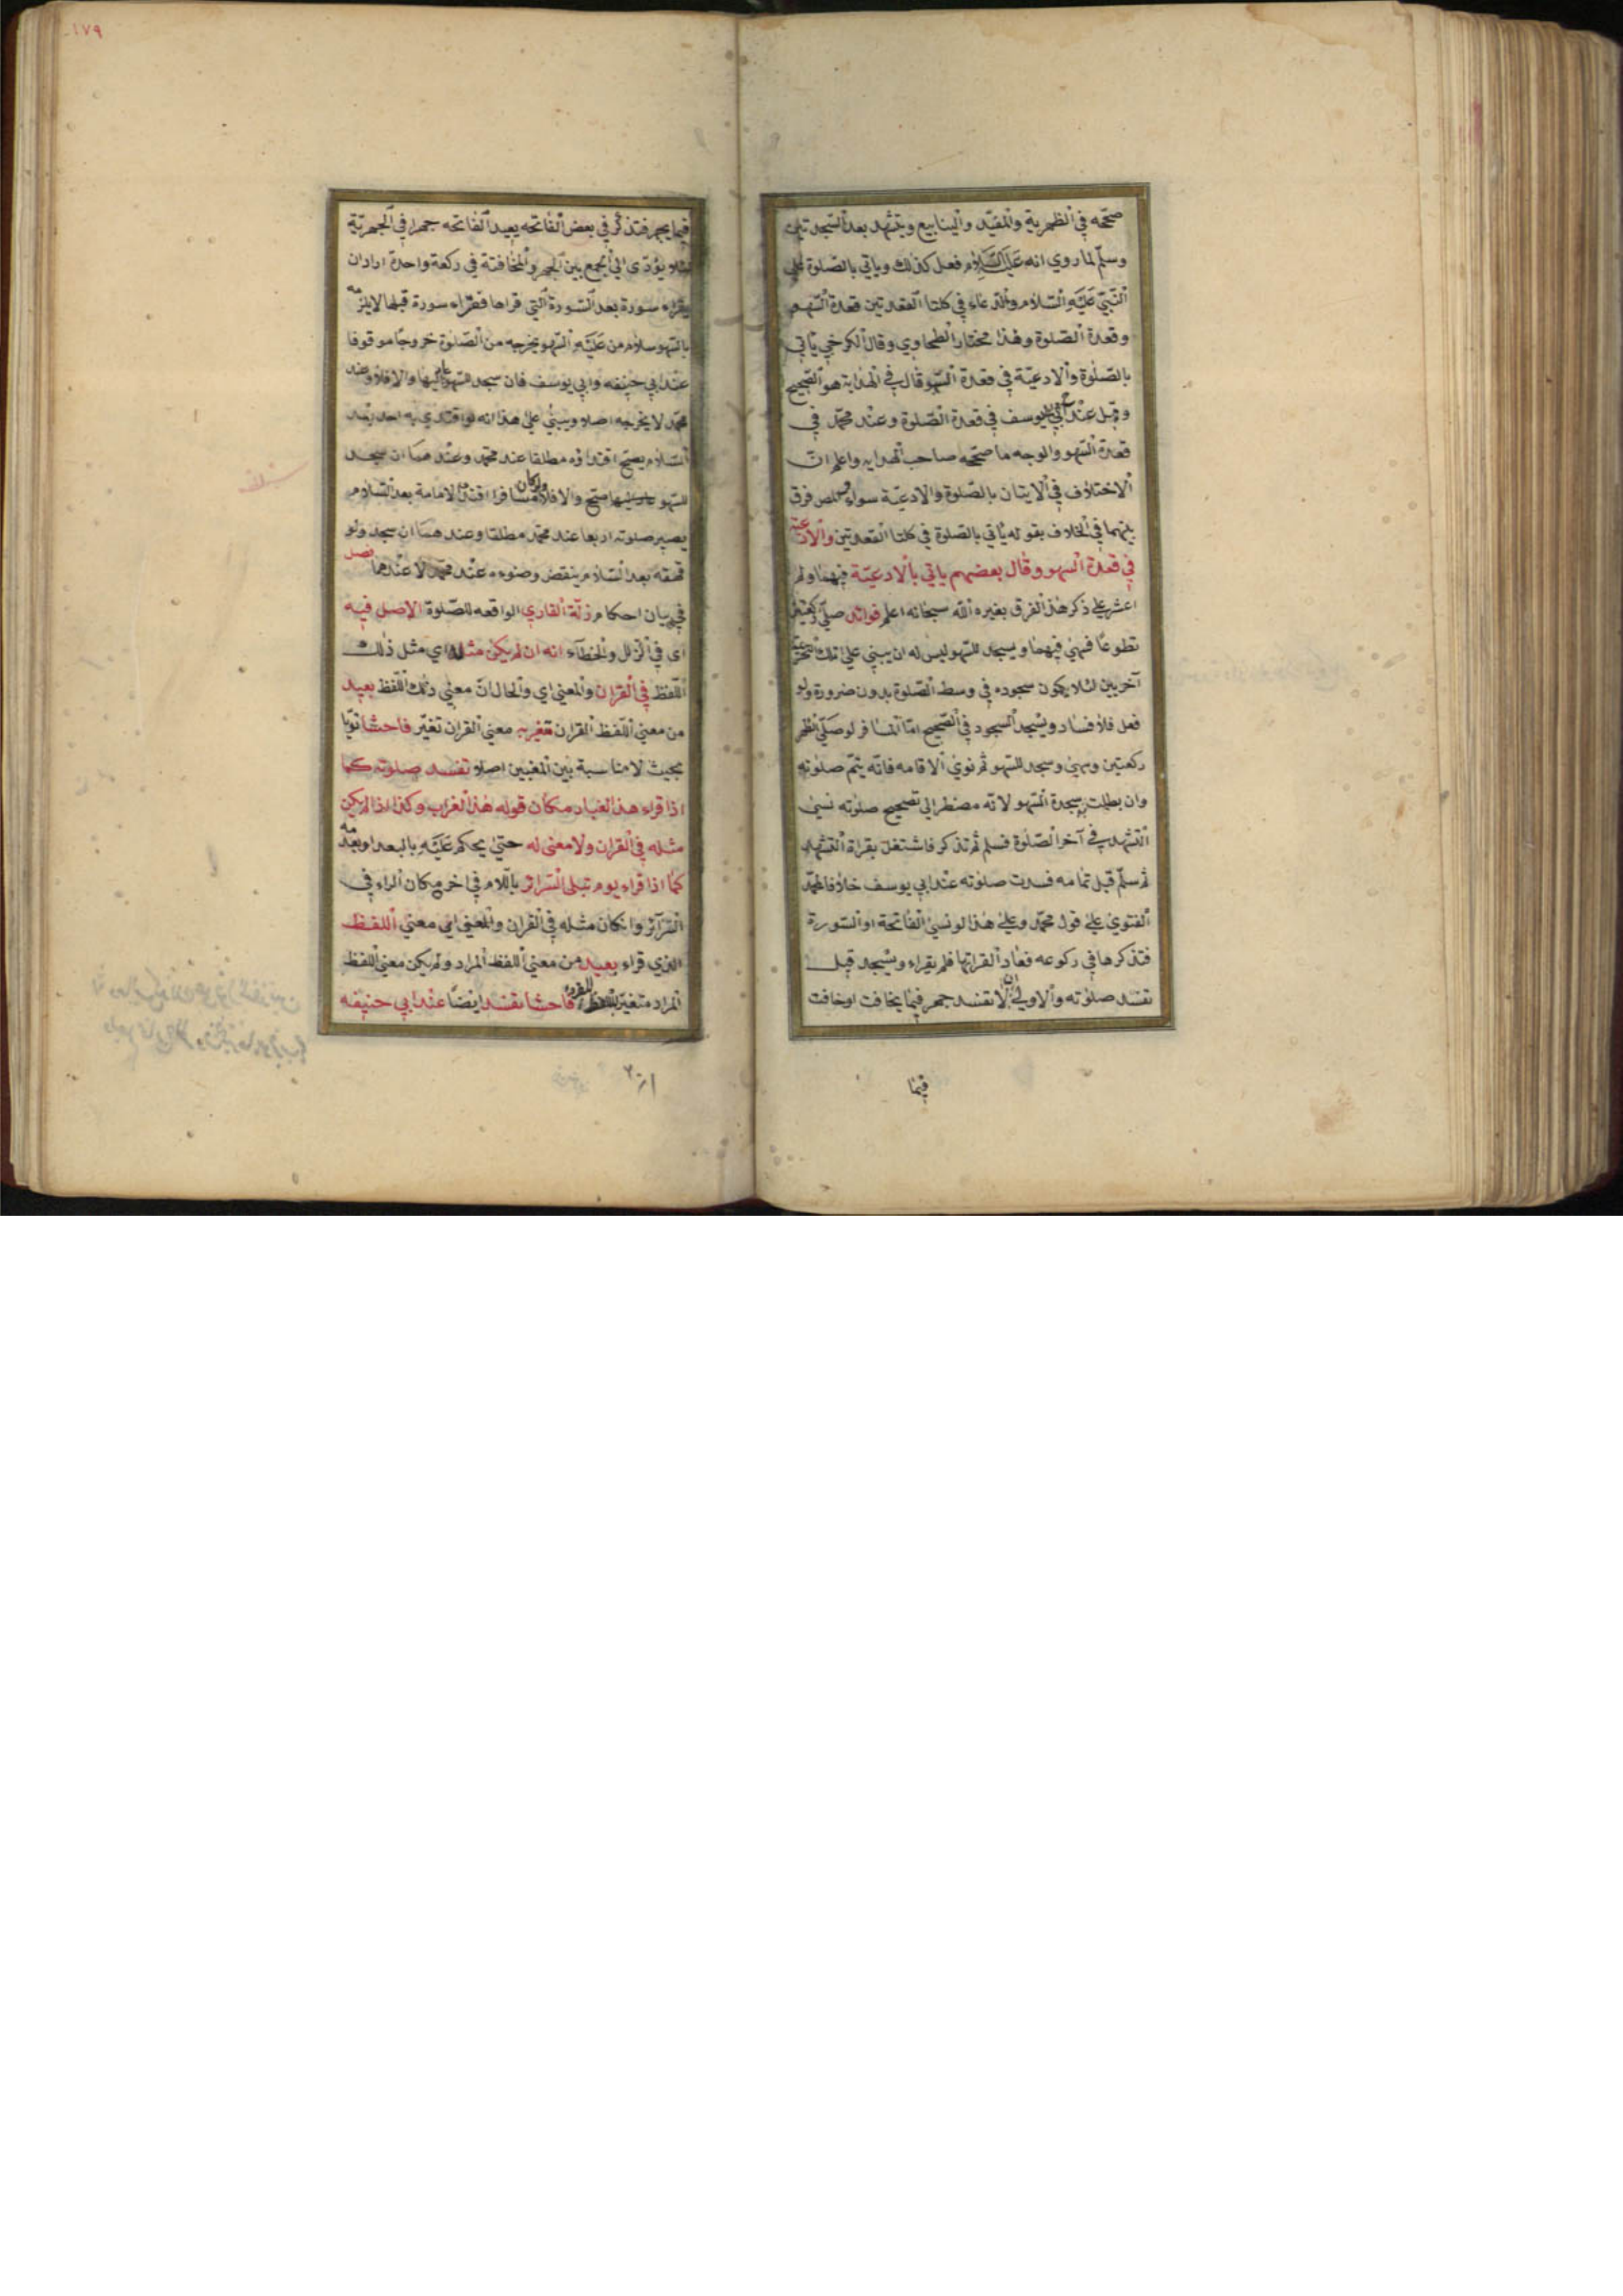 صحّحه في الظهرية والمفيد والينابيع ويتشهد بعد السجدتين
وسلّم لما روي انه عليه السلام فعل كذلك وياتي بالصلوة على
النبيّ عليه السلام والدعاء في كلتا القعدتين قعدة السهو
وقعدة الصلوة وهذا مختار الطحاوي وقال الكرخي ياتي
بالصلوة والادعيّة في قعدة السهو قال في الهداية هو الصحيح
وقيل عند ابي يوسف في قعدة الصلوة وعند محمّد في
قعدة السهو والوجه ما صحّحه صاحب الهدايه واعلم انّ
الاختلاف في الايتان بالصلوة والادعيّة سواء فرق
بينهما في الخلاف بقوله ياتي بالصلوة في كلتا القعدتين والادعية
في قعدة السهو وقال بعضهم ياتي بالادعيّة فيهما ولم
اعثر على ذكر هذا الفرق بغيره الله سبحانه اعلم فوائد صلّى ركعتين
تطوعًا فسهي فيهما ويسجد للسهو ليس له ان يبني على تلك التحريمة
آخريين لئلا يكون سجوده في وسط الصلوة بدون ضرورة ولو
فعل فلا فساد ويسجد السجود في الصحيح امّا المسافر لو صلّى الظهر
ركعتين وسهى وسجد للسهو ثم نوى الاقامه فانّه يتمّ صلوته
وان بطلت سجدة السهو لانّه مضطر الى تصحيح صلوته نسي
التشهد في آخر الصلوة فسلم ثم تذكر فاشتغل بقراة التشهد
ثم سلّم قبل تمامه فسدت صلوته عند ابي يوسف خلافا لمحمّد
الفتوى على قول محمّد وعلى هذا لو نسي الفاتحة او السورة
فتذكرها في ركوعه فعاد القراتها فلم يقراء ويسجد قبل
تفسد صلوته والاولى ان لا تفسد جهر فيما يخافت او خافت
فيما
١٧٩
فيما يجهر فتذكر في بعض الفاتحه يعيد الفاتحه جهرا في الجهريّة
لئلا يؤدى الى الجمع بين الجهر والمخافتة في ركعة واحدة اراد ان
يقراء سورة بعد السورة التي قراها فقراء سورة قبلها لا يلزمه
بالسهو سلام من عليه السهو يخرجه من الصلوة خروجًا موقوفا
عند ابي حنيفه وابي يوسف فان سجد للسهو عاد اليها والا فلا وعند
محمّد لا يخرجه اصلا ويبني على هذا انه لو اقتدي به احد بعد
السلام يصحّ اقتداؤه مطلقا عند محمّد وعند هما ان سجد
للسهو صح والا فلا ولو كان مسافرا الاقامة بعد السلام
يصير صلوته اربعا عند محمّد مطلقا وعند هما ان سجد ولو
قهقه بعد السلام ينقض وضوءه عند محمّد لا عندهما فصل
في بيان احكام زلّة القاري الواقعه للصلوة الاصل فيه
اى في الزلل والخطآء انه ان لم يكن مثله اي مثل ذلك
اللفظ في القران والمعنى اي والحال انّ معنى ذلك اللفظ بعيد
من معنى اللفظ القران متغيربه معنى القران تغيّر فاحشا قويّا
بحيث لا مناسبة بين المعنيين اصلا تفسد صلوته كما
اذا قراء هذا الغبار مكان قوله هذا الغراب وكذا اذا لم يكن
مثله في القران ولا معنى له حتى يحكم عليه بالبعد او بعدمه
كما اذا قراء يوم تبلى السرائر باللام في اخره مكان الراء في
السرآئر وان كان مثله في القران والمعنى اي معنى اللفظ
الذي قراء بعيد من معنى اللفظ المراد ولم يكن معنى اللفظ
المراد متغيّر باللفظ المقرو فاحشا تفسد ايضًا عند ابي حنيفه